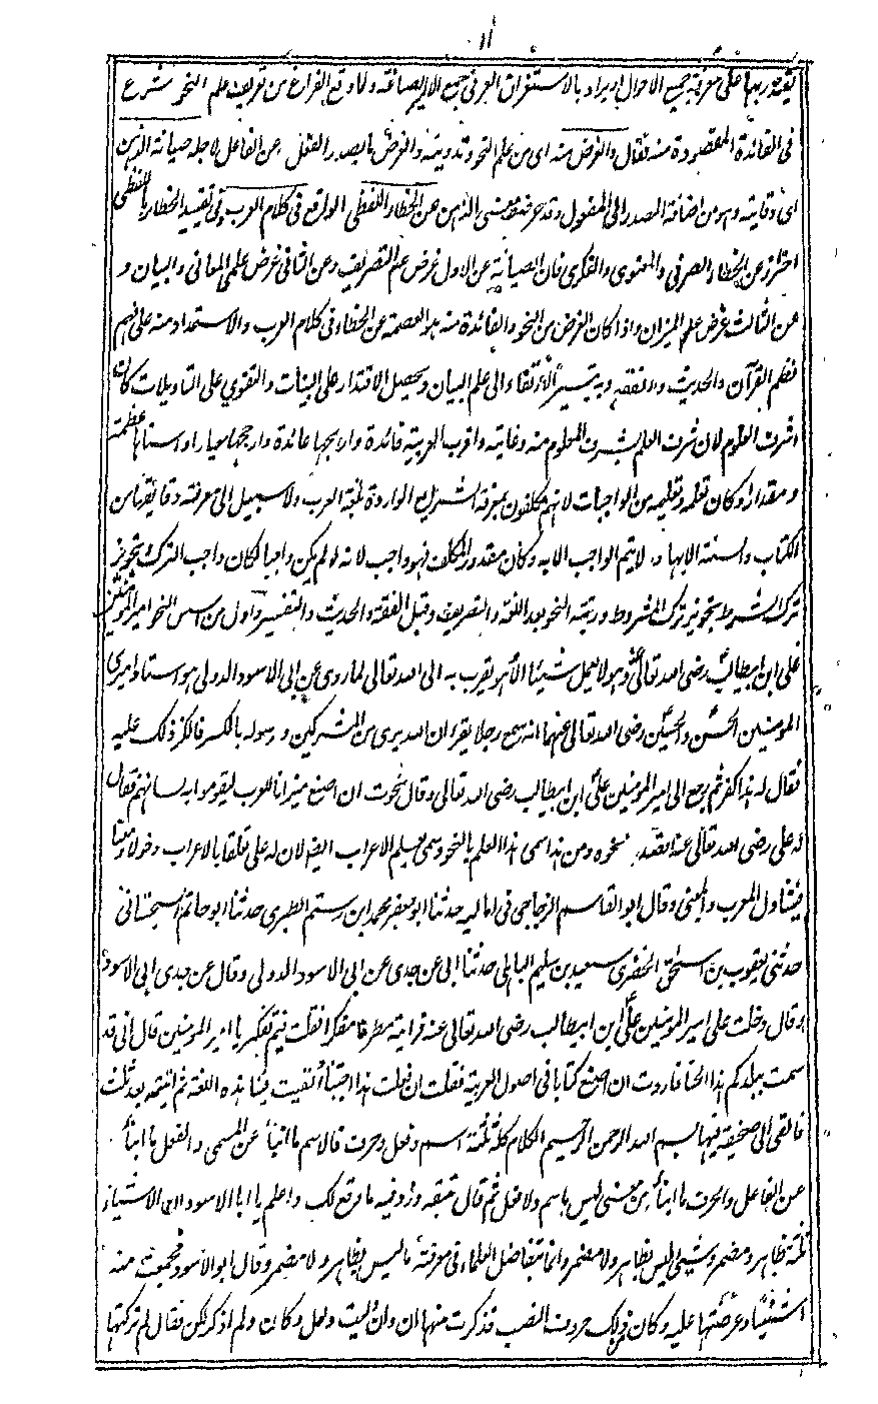 ١١
على معرفة جميع الاحوال او يراد بالاستغراق العرفى جمع الامير الصاغة ولما وقع الفراغ من تعريف علم النحو شرع
فى الفائدة المقصودة منه فقال والغرض منه اى من علم النحو وتدوينه والغرض ما يصدر الفعل عن الفاعل لاجله صيانة الذهن
اى وقايته وهو من اضافة المصدر الى المفعول وقد عرفت معنى الذهن عن الخطاء اللفظى الواقع فى كلام العرب وفى تقييد الخطاء باللفظى
احتراز عن الخطاء الصرفى والمعنوى والفكرى فان الصيانة عن الاول غرض علم التصريف وعن الثانى غرض علمى المعانى والبيان و
عن الثالث غرض علم الميزان واذا كان الغرض من النحو والفائدة منه هو العصمة عن الخطاء فى كلام العرب والاستمداد منه على فهم
نظم القرآن والحديث والفقه وبه يتيسر الارتقاء الى علم البيان ويحصل الاقتدار على البينات والتقوي على التاويلات كان
اشرف العلوم لان شرف العلم بشرف المعلوم منه وغايته واقرب العربية فائدة واربحها عائدة وارجحها معيارا واسناها عظمة
ومقدارا وكان تعلمه وتعليمه من الواجبات لانهم مكلفون بمعرفة الشرائع الواردة بلغة العرب ولا سبيل الى معرفة دقائقها من
الكتاب والسنة الا بها وما لا يتم الواجب الا به وكان مقدور المكلف فهو واجب لانه لو لم يكن واجبا لكان واجب الترك بتجويز
ترك الشرط بتجويز ترك المشروط ورتبة النحو بعد اللغة والتصريف وقبل الفقه والحديث والتفسير واول من اسس النحو امير المؤمنين
على ابن ابيطالب رضى الله تعالى عنه وهو لا يعمل شيئا الا بامر يقرب به الى الله تعالى لما روى عن ابى الاسود الدولى هو استاد اميرى
المؤمنين الحسن والحسين رضى الله تعالى عنهما انه سمع رجلا يقرء ان الله برى من المشركين ورسوله بالكسر فانكر ذلك عليه
فقال له هذا كفر ثم رجع الى امير المؤمنين على ابن ابيطالب رضى الله تعالى وقال نحوت ان اصنع ميزانا للعرب ليقوموا به لسانهم فقال
له على رضى الله تعالى عنه اقصد نحوه ومن هذا سمى هذا العلم بالنحو وسمى بعلم الاعراب ايضا لان له على تعلقا بالاعراب دخولا
فيتناول المعرب والمبنى وقال ابو القاسم الزجاجى فى اماليه حدثنا ابو جعفر محمد ابن رستم الطبرى حدثنا ابو حاتم السجستانى
حدثنى يعقوب بن اسحق الحضرى سعيد بن سليم الباهلى حدثنا ابى عن جدى عن ابى الاسود الدولى وقال عن جدى ابى الاسود
وقال دخلت على امير المؤمنين على ابن ابيطالب رضى الله تعالى عنه فرايته مطرقا مفكرا فقلت فيم تفكر يا امير المؤمنين قال انى قد
سمعت ببلدكم هذا لحنا فاردت ان اصنع كتابا فى اصول العربية فقلت ان فعلت هذا احييتنا وابقيت فينا هذه اللغة ثم اتيته بعد ثلث
فالقى الى صحيفة فيها بسم الله الرحمن الرحيم الكلام كله ثلثة اسم وفعل وحرف فالاسم ما انبأ عن المسمى والفعل ما انبأ
عن الفاعل والحرف ما انبأ عن معنى ليس باسم ولا فعل ثم قال تتبعه وزد فيه ما وقع لك واعلم يا ابا الاسود ان الاشياء
ثلثة ظاهر ومضمر وشيئ ليس بظاهر ولا مضمر وانما تتفاضل العلماء فى معرفة ما ليس بظاهر ولا مضمر وقال ابو الاسود فجمعت منه
اشياء وعرضتها عليه وكان من ذلك حروف النصب فذكرت منها ان وان وليت ولعل وكان ولم اذكر لكن فقال لم تركتها